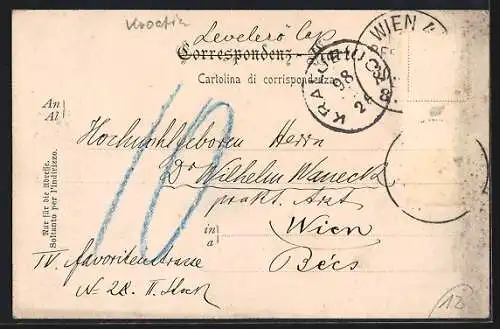 Kroatien
Levelező Lap
Correspondenz-
Cartolina di corrispondenza
WIEN 4
98
An
Al
10
Hochwohlgeboren Herrn
Dr Wilhelm Waneck
prakt. Arzt
in
a
Wien
Bécs
IV. Favoritenstrasse
No 28. II. Stock
Nur für die Adresse.
Soltanto per l'indirizzo.
12